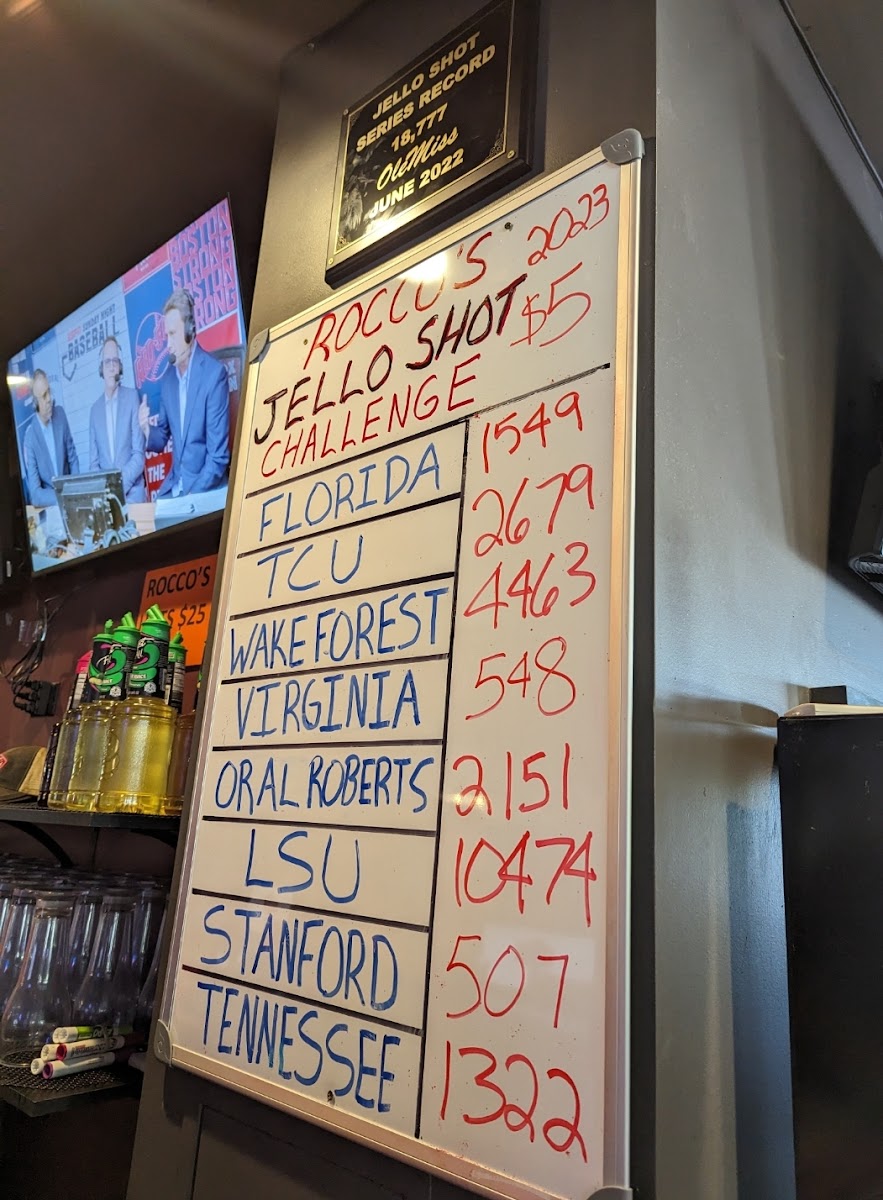 JELLO SHOT
SERIES RECORD
18,777
Ole Miss
JUNE 2022
ROCCO'S 2023
JELLO SHOT $5
CHALLENGE
FLORIDA 1549
TCU 2679
WAKE FOREST 4463
VIRGINIA 548
ORAL ROBERTS 2151
LSU 10474
STANFORD 507
TENNESSEE 1322
SUNDAY NIGHT
BASEBALL
BOSTON
STRONG
ROCCO'S
$25